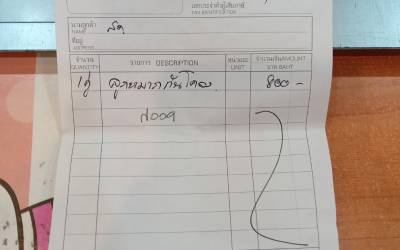 เลขประจำตัวผู้เสียภาษี
TAX IDENTIFICATION
นามลูกค้า สด
NAME
ที่อยู่
ADDRESS
จำนวน รายการ DESCRIPTION หน่วยละ จำนวนเงิน AMOUNT
QUANTITY UNIT บาท BAHT
1 คู่ ลูกหมากกันโคลง 800 -